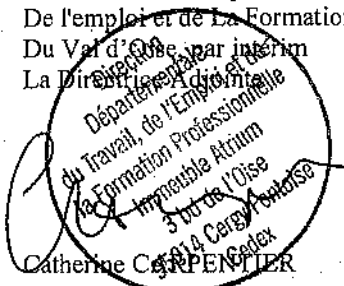 De l'emploi et de La Formation
Du Val d'Oise, par intérim
La Directrice Adjointe
Direction
Départementale
du Travail, de l'Emploi et de
la Formation Professionnelle
Immeuble Atrium
3 bd de l'Oise
95014 Cergy Pontoise
Cedex
Catherine CARPENTIER